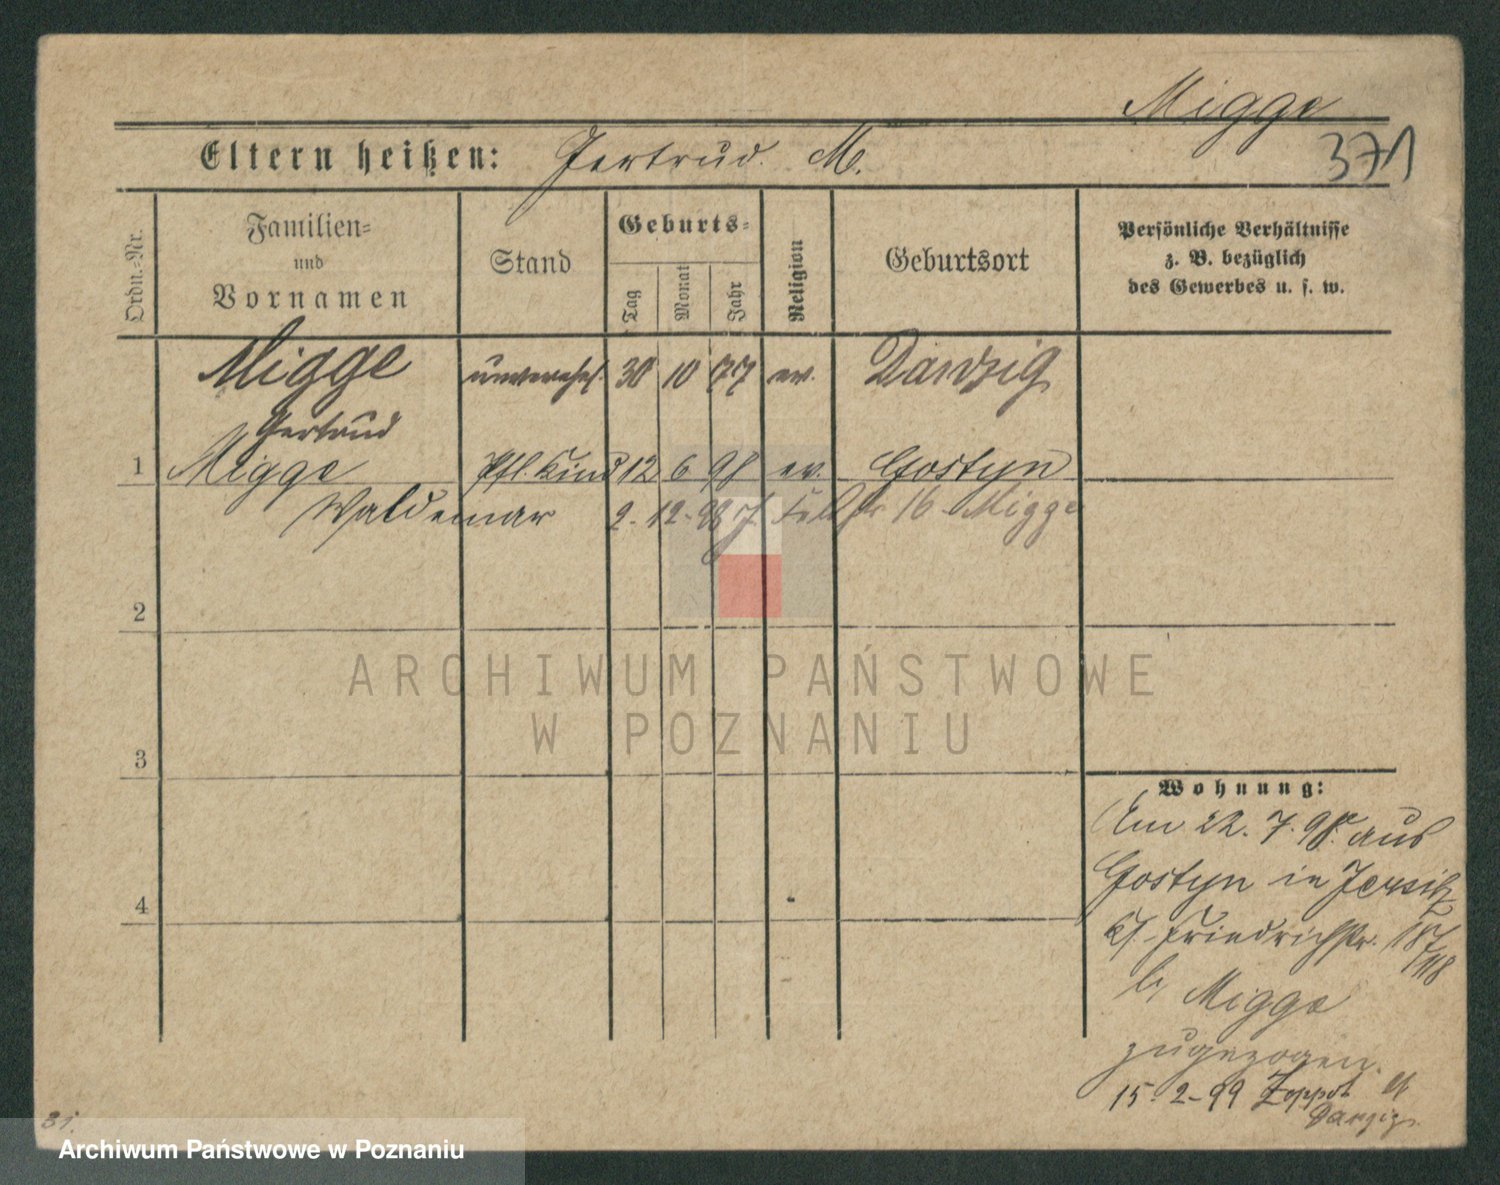 Migge
371
Eltern heißen: Gertrud. M.
Ordn.-Nr.
Familien-
und
Vornamen
Stand
Geburts-
Tag
Monat
Jahr
Religion
Geburtsort
Persönliche Verhältnisse
z. B. bezüglich
des Gewerbes u. s. w.
Migge unverehel. 30 10 77 ev. Danzig
Gertrud
1 Migge Pfl. Kind 12 6 98 ev. Gostyn
Waldemar 2. 12. 98 16 Migge
2
ARCHIWUM PAŃSTWOWE
W POZNANIU
3
Wohnung:
Am 22. 7. 98. aus
Gostyn in Jersitz
Kf. Friedrichstr. 187/118
b/ Migge
zugezogen.
4
15.-2-99 Zoppot
Danzig.
31.
Archiwum Państwowe w Poznaniu